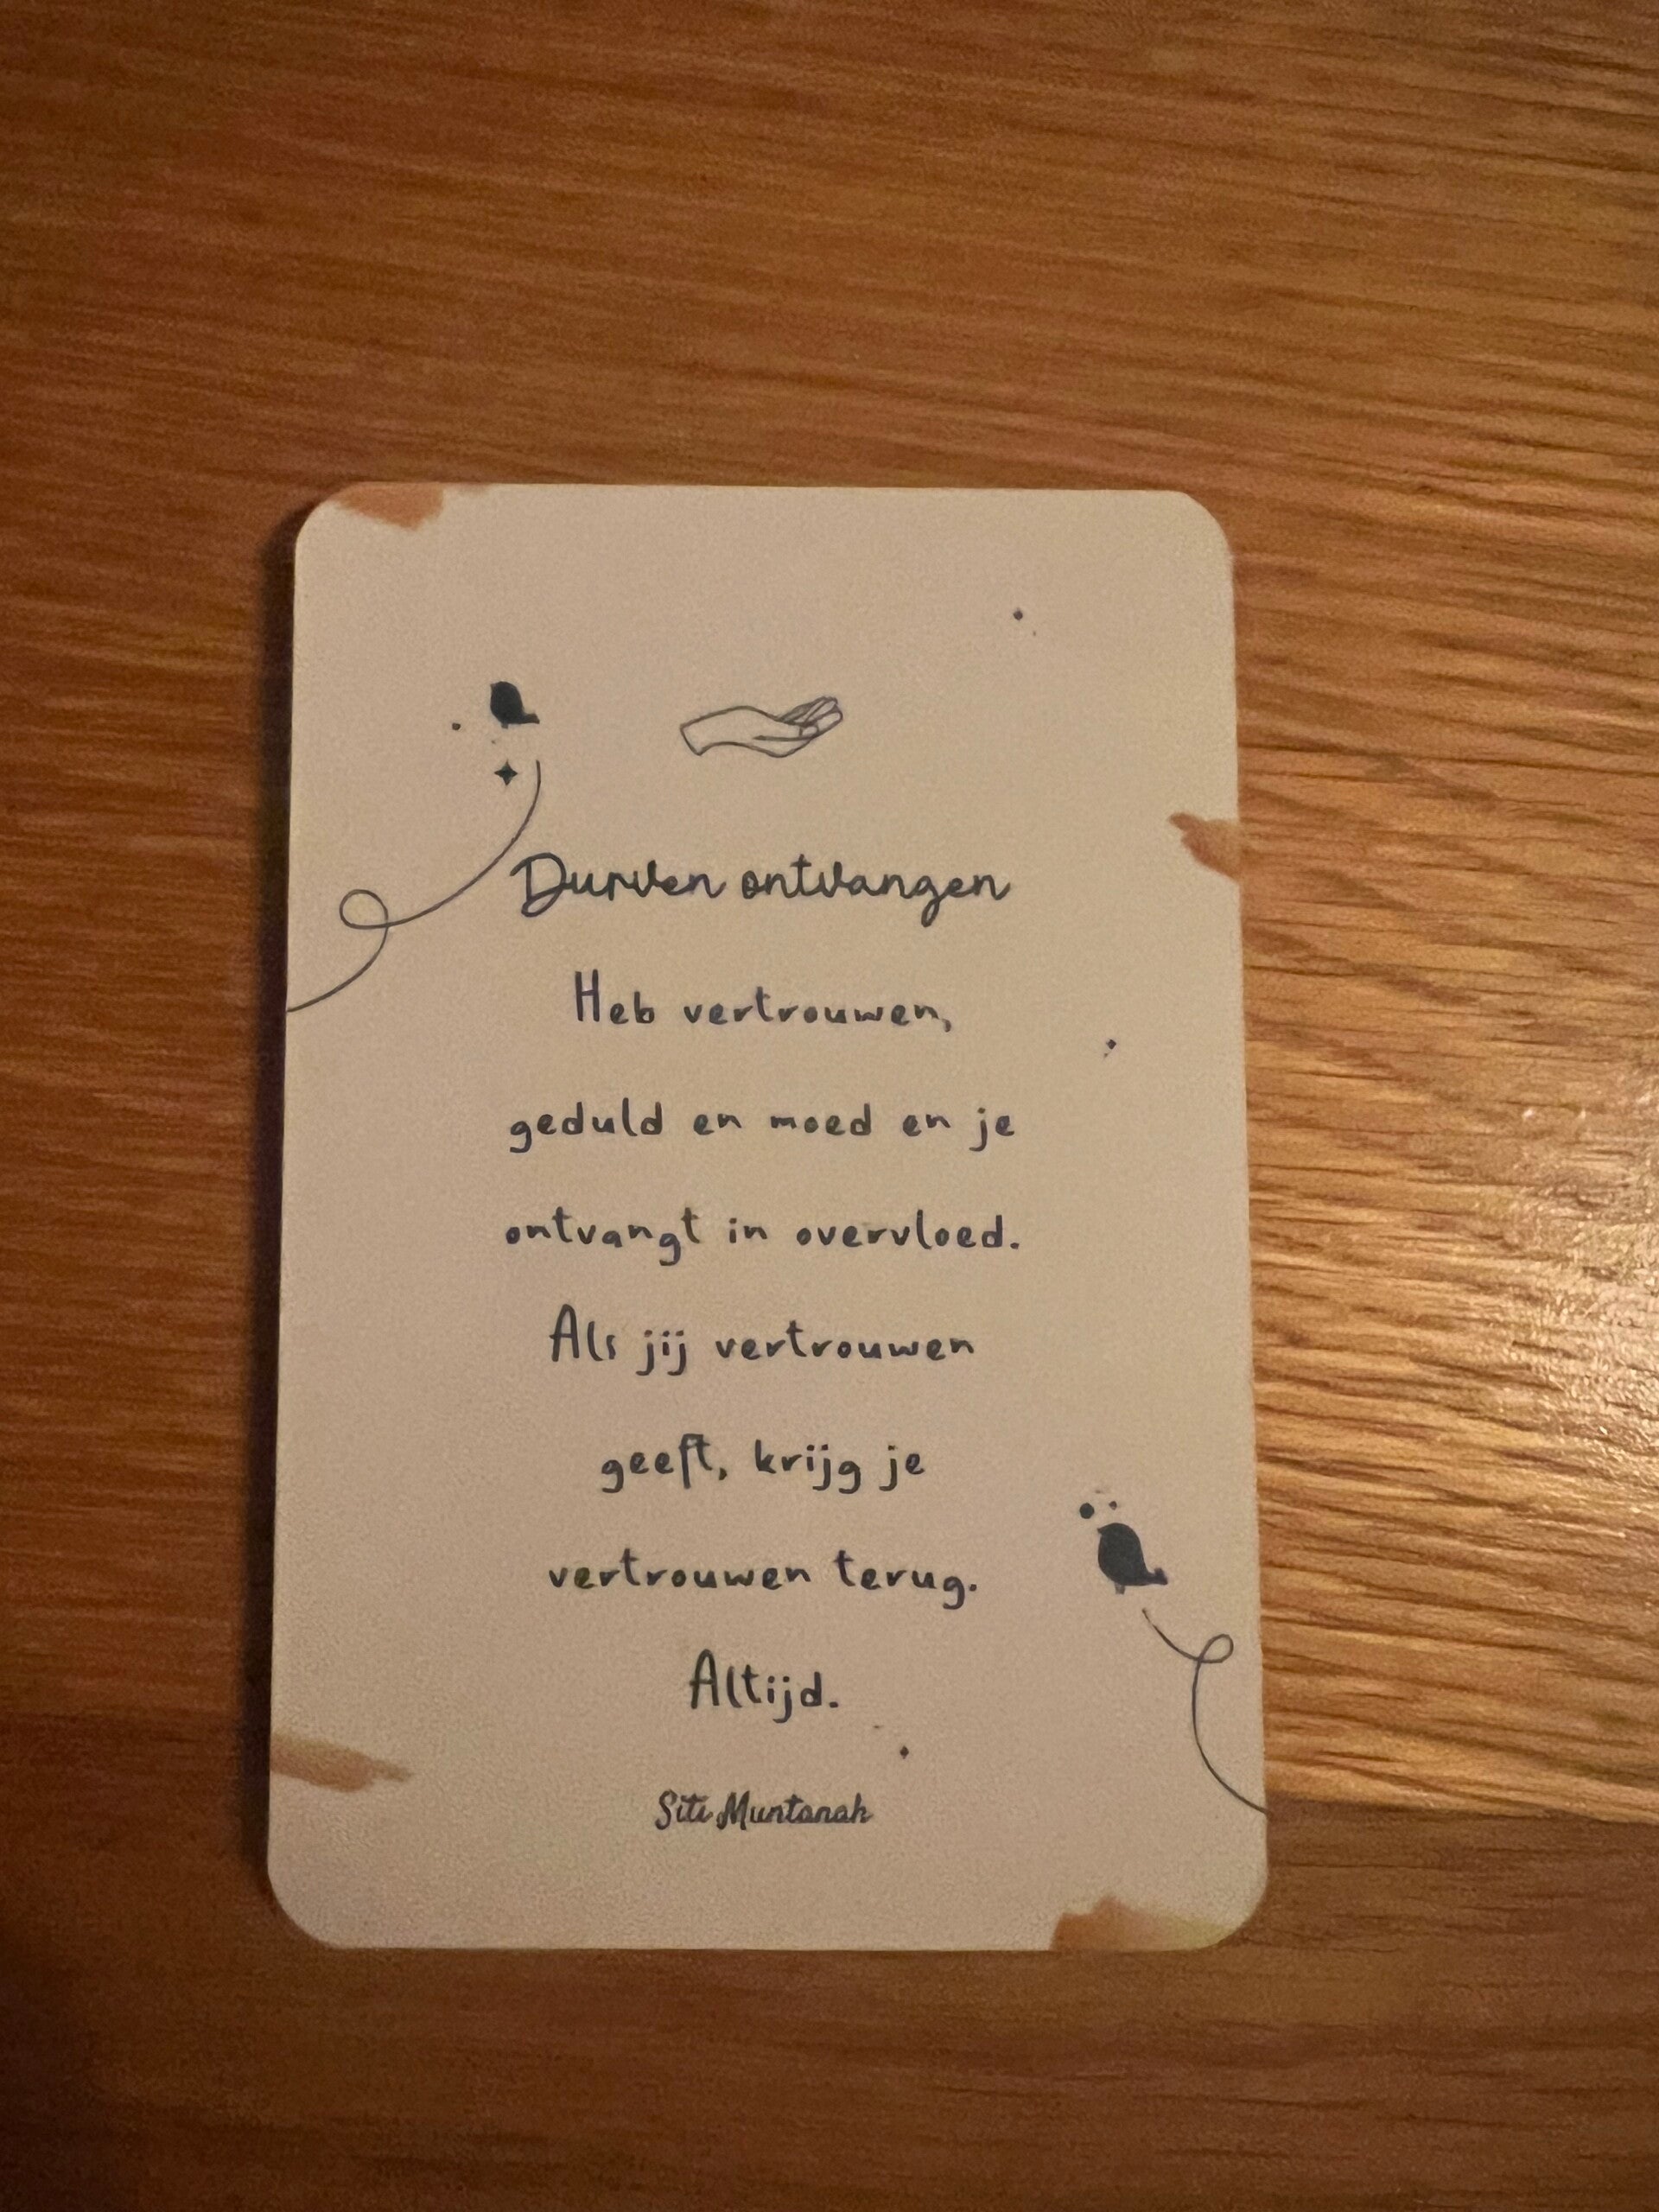 Durven ontvangen
Heb vertrouwen,
geduld en moed en je
ontvangt in overvloed.
Als jij vertrouwen
geeft, krijg je
vertrouwen terug.
Altijd.
Siti Muntanah